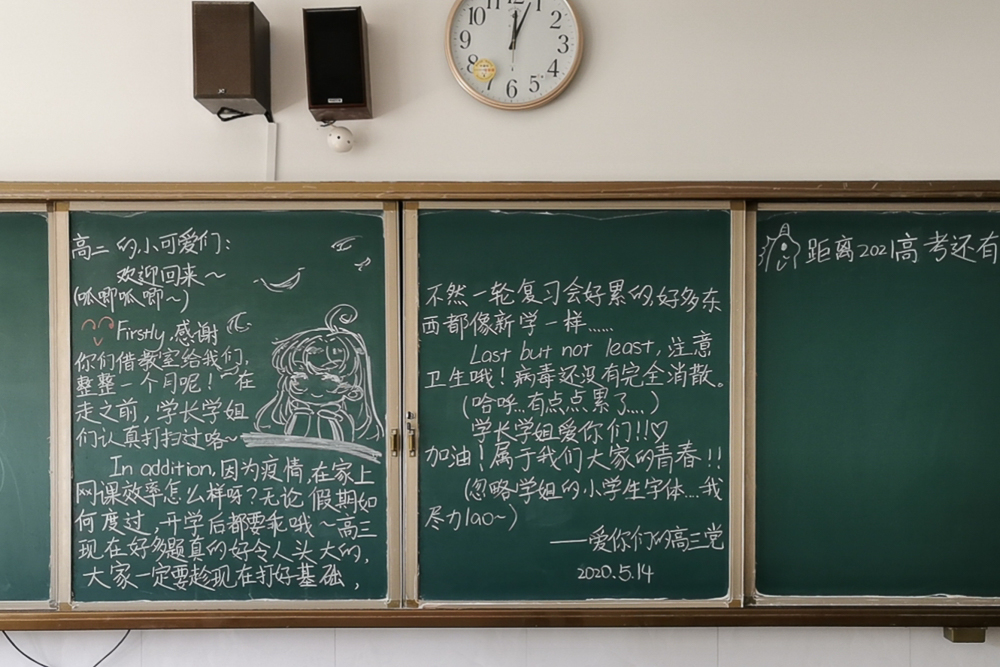 10
11
12
1
2
3
4
5
6
7
8
9
高二的小可爱们：
欢迎回来～
(呱唧呱唧～)
Firstly,感谢
你们借教室给我们，
整整一个月呢！在
走之前，学长学姐
们认真打扫过咯～
In addition,因为疫情，在家上
网课效率怎么样呀？无论假期如
何度过，开学后都要乖哦～高三
现在好多题真的好令人头大的，
大家一定要趁现在打好基础，
不然一轮复习会好累的，好多东
西都像新学一样……
Last but not least，注意
卫生哦！病毒还没有完全消散。
(哈呼…有点点累了…)
学长学姐爱你们!!♡
加油！属于我们大家的青春!!
(忽略学姐的小学生字体…我
尽力lao~)
——爱你们的高三党
2020.5.14
距离2021高考还有